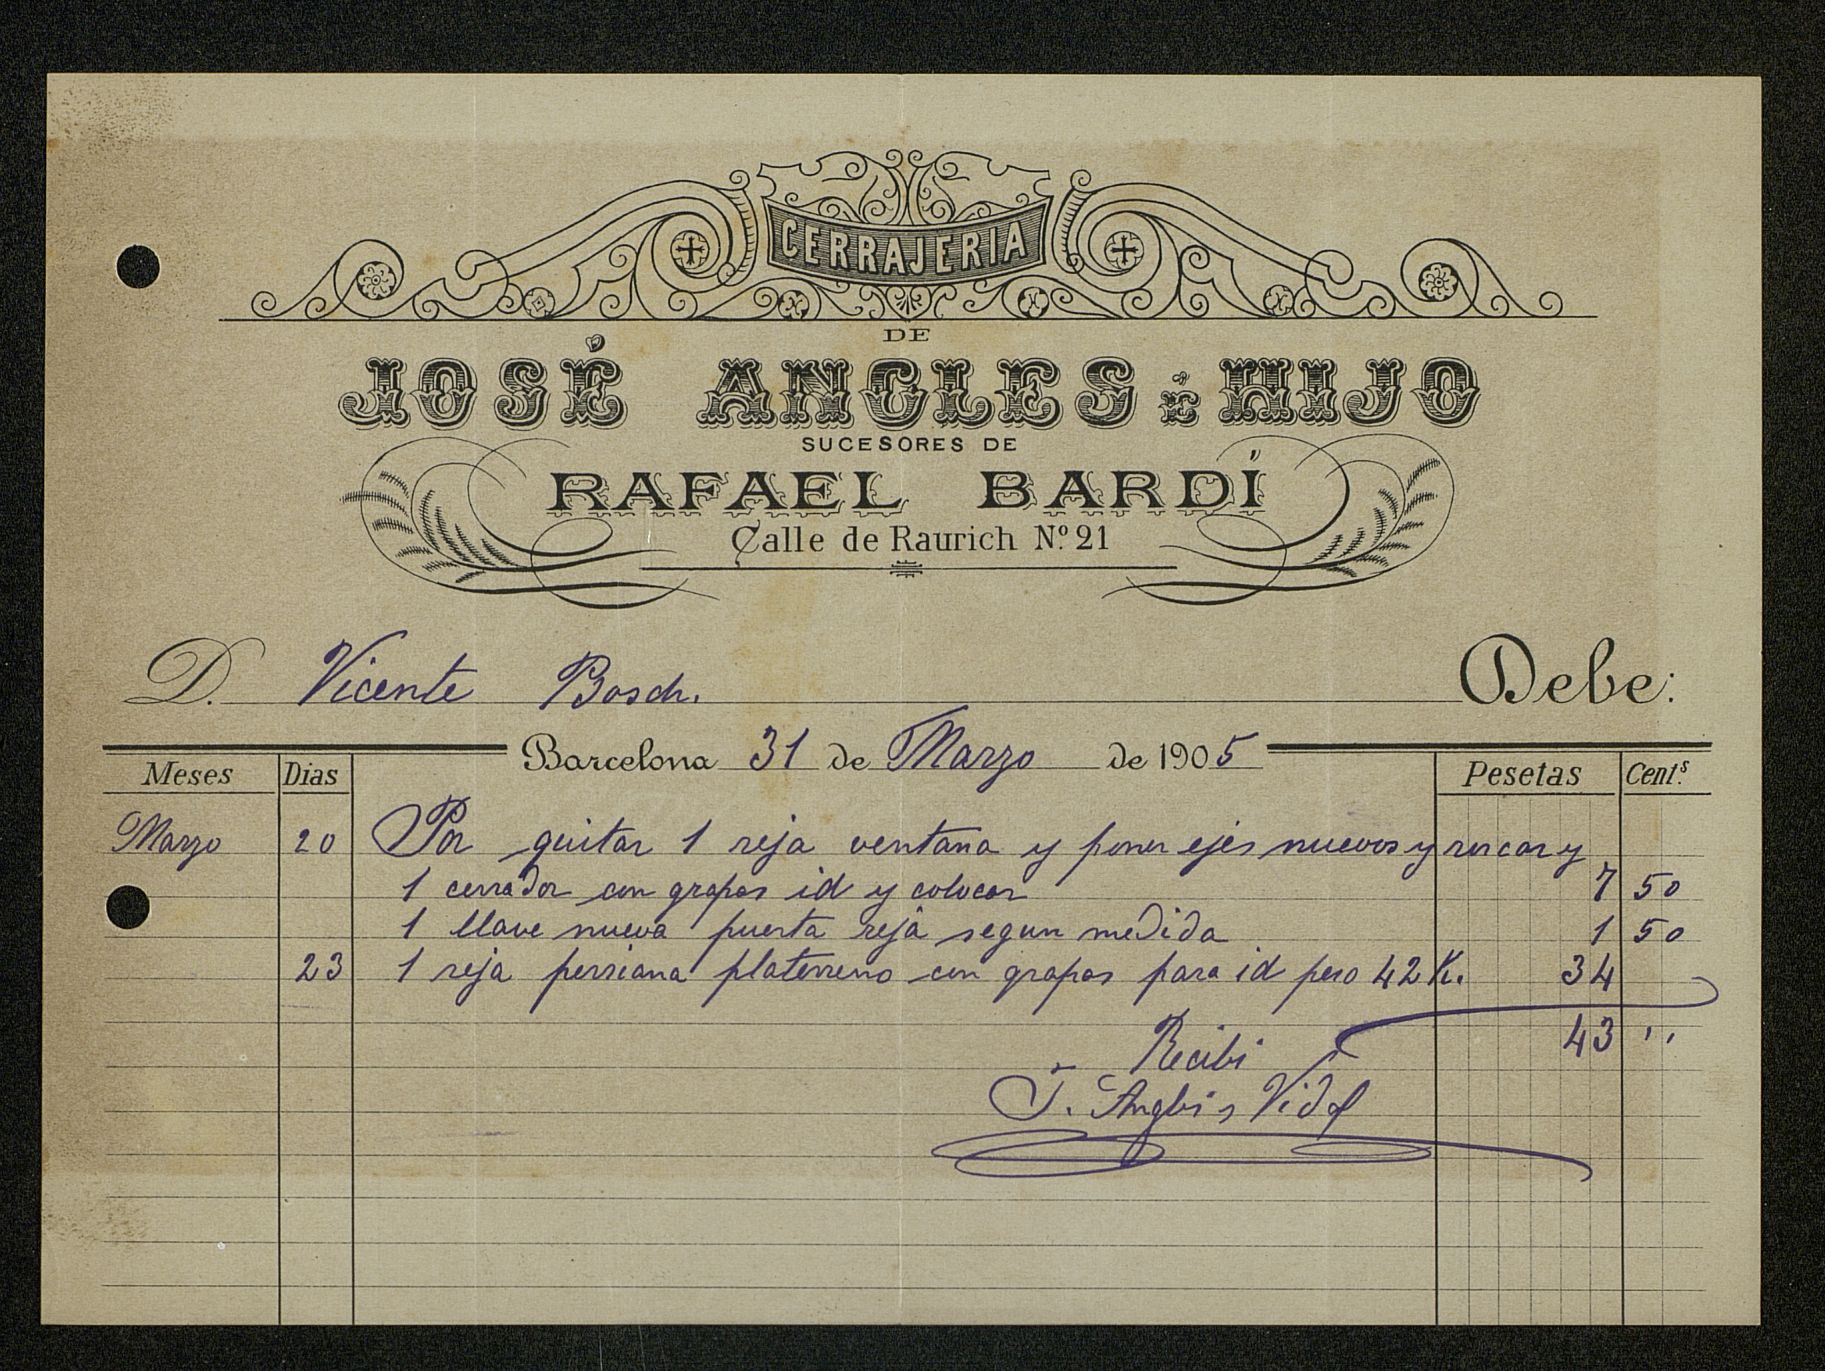 CERRAJERIA
DE
JOSÉ ANGLES É HIJO
SUCESORES DE
RAFAEL BARDÍ
Calle de Raurich Nº. 21
D. Vicente Bosch. Debe:
Barcelona 31 de Marzo de 1905
Meses Dias Pesetas Centˢ.
Marzo 20 Por quitar 1 reja ventana y poner ejes nuevos y roscar y
1 cerrador con grapas id y colocar 7 50
1 llave nueva puerta reja segun medida 1 50
23 1 reja persiana platerreno con grapas para id peso 42 K. 34
43 ''
Recibi
J. Anglés Vidal